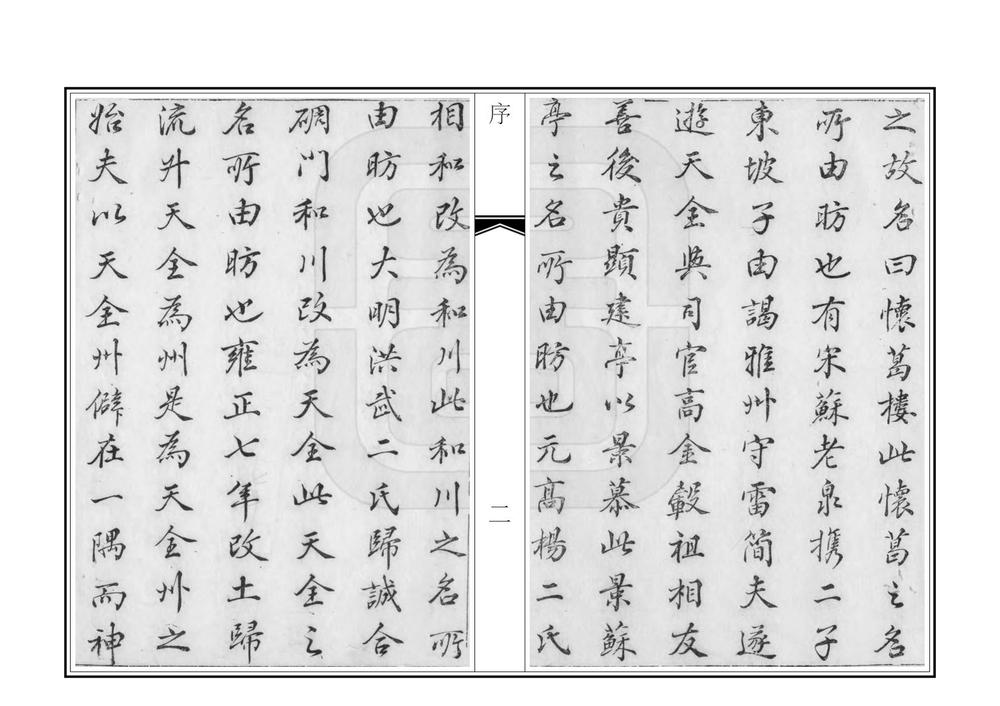 之故名曰懷葛樓此懷葛之名
所由昉也有宋蘇老泉攜二子
東坡子由謁雅州守雷簡夫遂
遊天全與司官高金轂祖相友
善後貴顯建亭以景慕此景蘇
亭之名所由昉也元高楊二氏
序
二
相和改為和川此和川之名所
由昉也大明洪武二氏歸誠合
碉門和川改為天全此天全之
名所由昉也雍正七年改土歸
流升天全為州是為天全州之
始夫以天全州僻在一隅而神